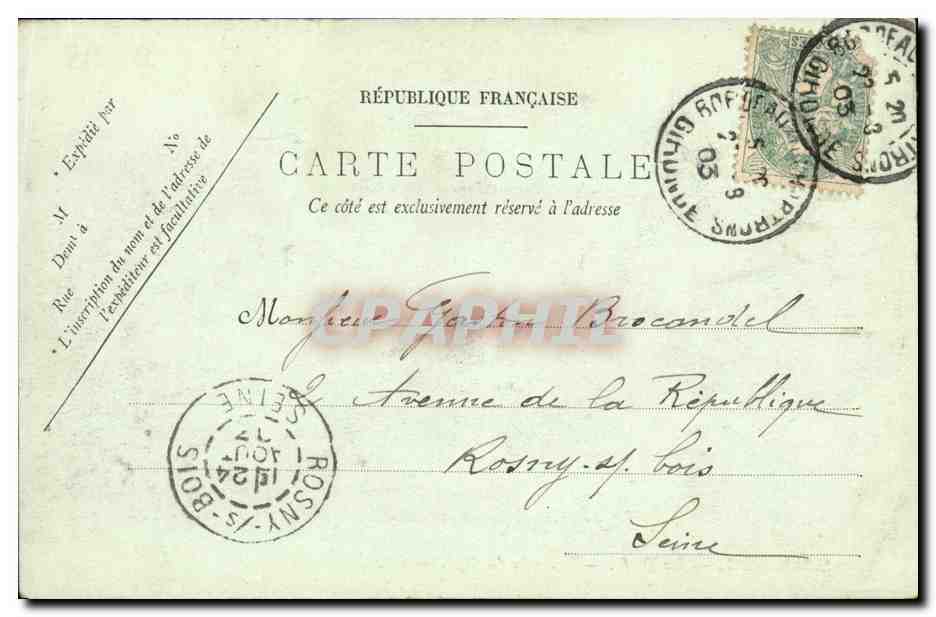 RÉPUBLIQUE FRANÇAISE
CARTE POSTALE
Ce côté est exclusivement réservé à l'adresse
* Expédié par
M
Demt à
Rue No
* L'inscription du nom et de l'adresse de
l'expéditeur est facultative
BORDEAUX CHARTRONS GIRONDE
5 8
03
BORDEAUX
GIRONDE
03
CPAPHIL
Monsieur Gaston Brocandel
2 Avenue de la République
Rosny-s/ bois
Seine
ROSNY-/S-BOIS
SEINE
24
AOUT